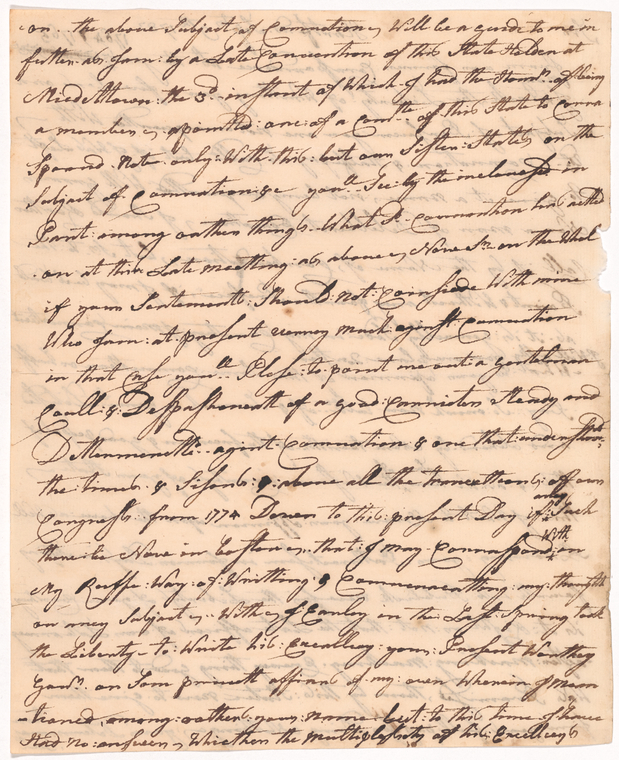 on the above Subject of Comutation, Will be a guide to me in
futter as Som: by a Late Convention of this State Holden at
Middeltown the 3d instant of Which I had the Honr: of being
a member, apointed: one: of a Comtte of this State to Corra
Spond Note only: With this: but our Sister: States on the
Subject of Commutation &c youll See: by the inclosed in
Part: among oather things What Sd Convention has acted
on at this Late meeting: as above, Now Sr on the Whol
if yours Sentements: Should: not: Coinside With mine
Who Som: at: present very much aginst Commutation
in that Case youll Plese: to: point me out: a gentelman
Coull & Despashoneatt of a good: Carricter steady and
Determenett: aginst Commutation & one that: understoo
the: times & Sisons: & above all the transettons: off our
Congress: from 1774 Down to this: present Day if: Such only
there: be None in Boston, that: I may Corraspond: on With
My Ruffe: Way: of: Writting & Commenecatting: my: thaughts
on aney Subject, With, I Earley in the Last Spring took
the Liberty to: Write his: Excellency: yours: Present Worthey
Govr: on Som privett affairs of my: own Wherein I men
tioned, among: oather: yours: name: but: to this time I have
Had no: answer, Whether the multiplisity of his: Excellencys